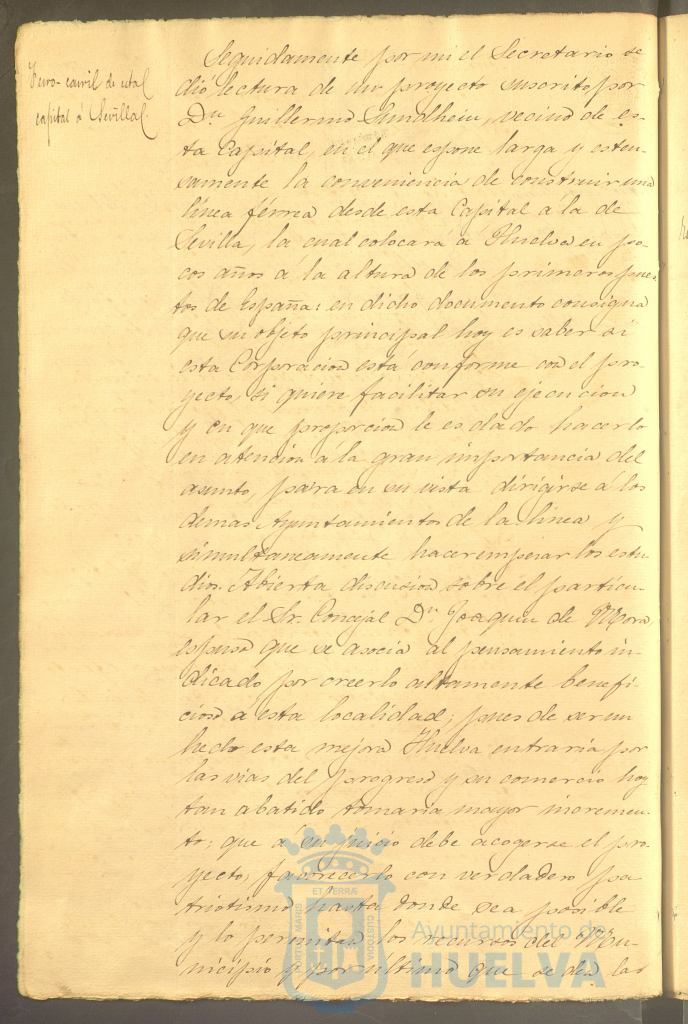 Ferro-carril de esta
capital á Sevilla.
Seguidamente por mi el Secretario se
dió lectura de un proyecto suscrito por
Dn. Guillermo Sundhein, vecino de es-
ta Capital, en el que espone larga y esten-
samente la conveniencia de construir una
línea férrea desde esta Capital á la de
Sevilla, la cual colocará á Huelva en po-
cos años á la altura de los primeros puer-
tos de España: en dicho documento consigna
que su objeto principal hoy es saber si
esta Corporacion está conforme con el pro-
yecto, si quiere facilitar su ejecucion
y en que proporcion le es dado hacerlo
en atencion á la gran importancia del
asunto, para en su vista dirigirse a los
demas Ayuntamientos de la linea y
simultaneamente hacer empezar los estu-
dios. Abierta discusion sobre el particu-
lar el Sr. Concejal Dn. Joaquin de Mora
espuso que se asocia al pensamiento in-
dicado por creerlo altamente benefi-
cioso a esta localidad; pues de ser un
hecho esta mejora Huelva entraria por
las vias del progreso y su comercio hoy
tan abatido tomaria mayor incremen-
to; que á su juicio debe acogerse el pro-
yecto, favorecerlo con verdadero pa-
triotismo hasta donde sea posible
y lo permitan los recursos del Mu-
nicipio y por ultimo que se den las
PORTUS MARIS
ET TERRÆ
CUSTODIA
Ayuntamiento de
HUELVA